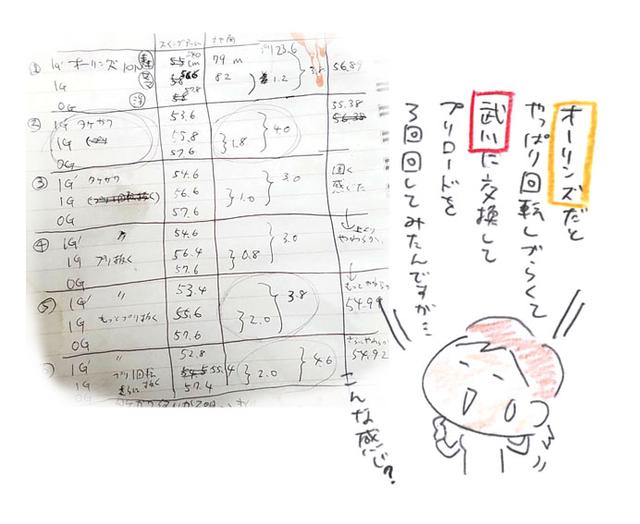 スイングアーム
① 1G' オーリンズ 10N
1G
0G
54.0
cm
56.6
57.8
79 m
82
1.2
3.8
56.89
② 1G' タケガワ 53.6
1G 55.8
0G 57.6
1.8
4.0
55.38
③ 1G' タケガワ 54.6
1G 56.6
0G 57.6
1.0
3.0
固く
感じた
④ 1G' 〃 54.6
1G プリ抜く 56.4
0G 57.6
0.8
3.0
⑤ 1G' 〃 53.4
1G もっとプリ抜く 55.6
0G 57.6
2.0
3.8
1G' 〃 52.8
プリ1回転
1G さらに抜く 55.4
0G 57.4
2.0
4.6
54.92
オーリンズだと
やっぱり回転しづらくて
武川に交換して
プリロードを
3回回してみたんですが…
こんな感じ?